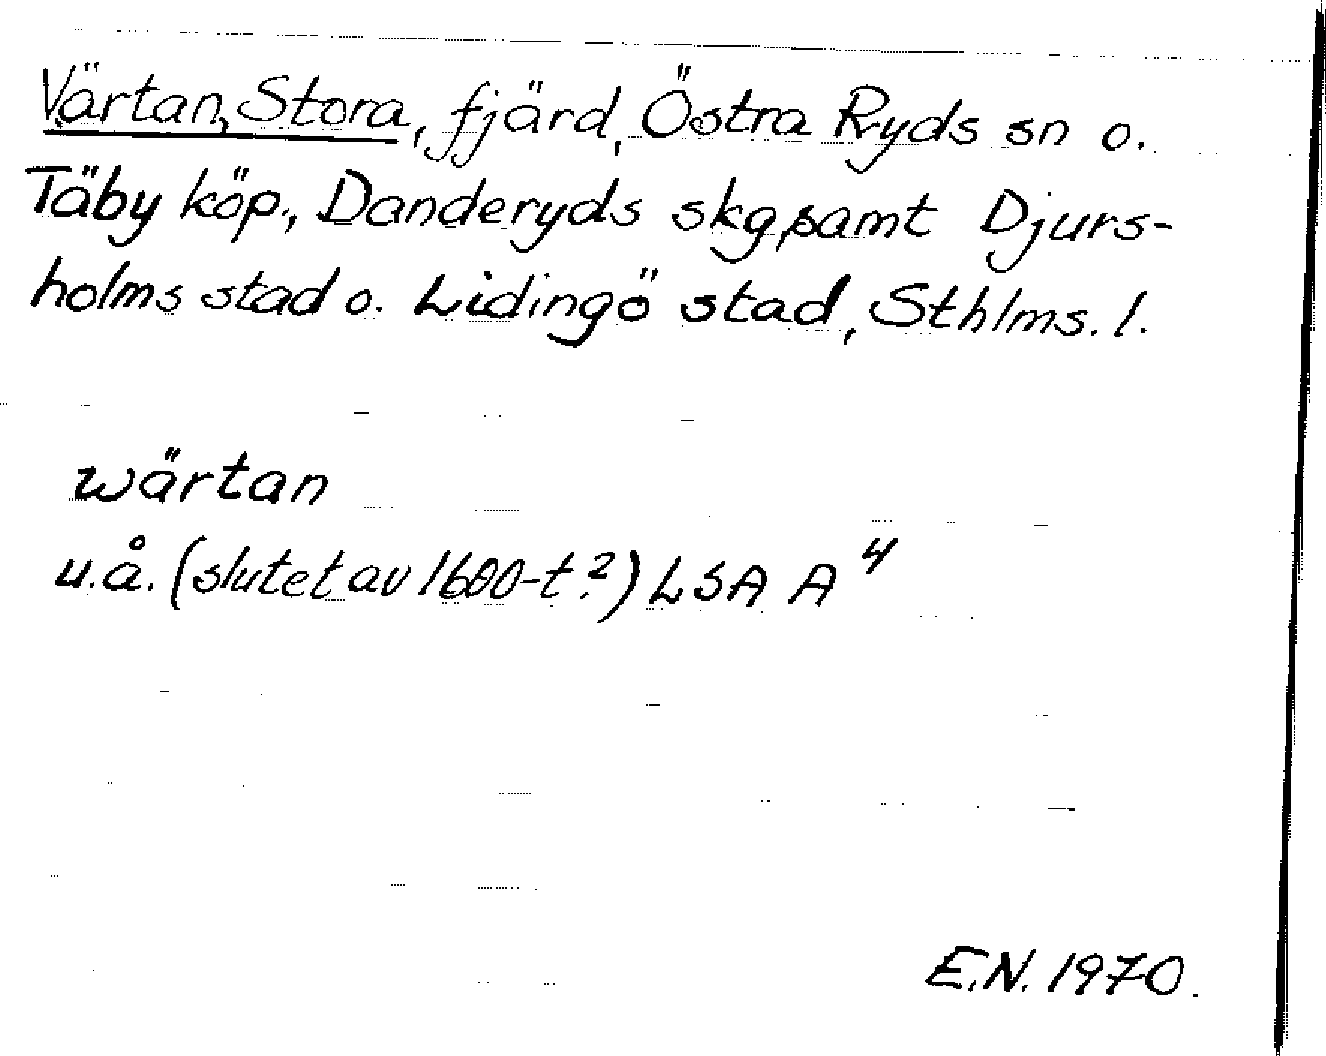 Värtan, Stora, fjärd, Östra Ryds sn o.
Täby köp., Danderyds skg, samt Djurs-
holms stad o. Lidingö stad, Sthlms. l.
wärtan
u.å. (slutet av 1600-t.?) LSA A⁴
E.N. 1970.